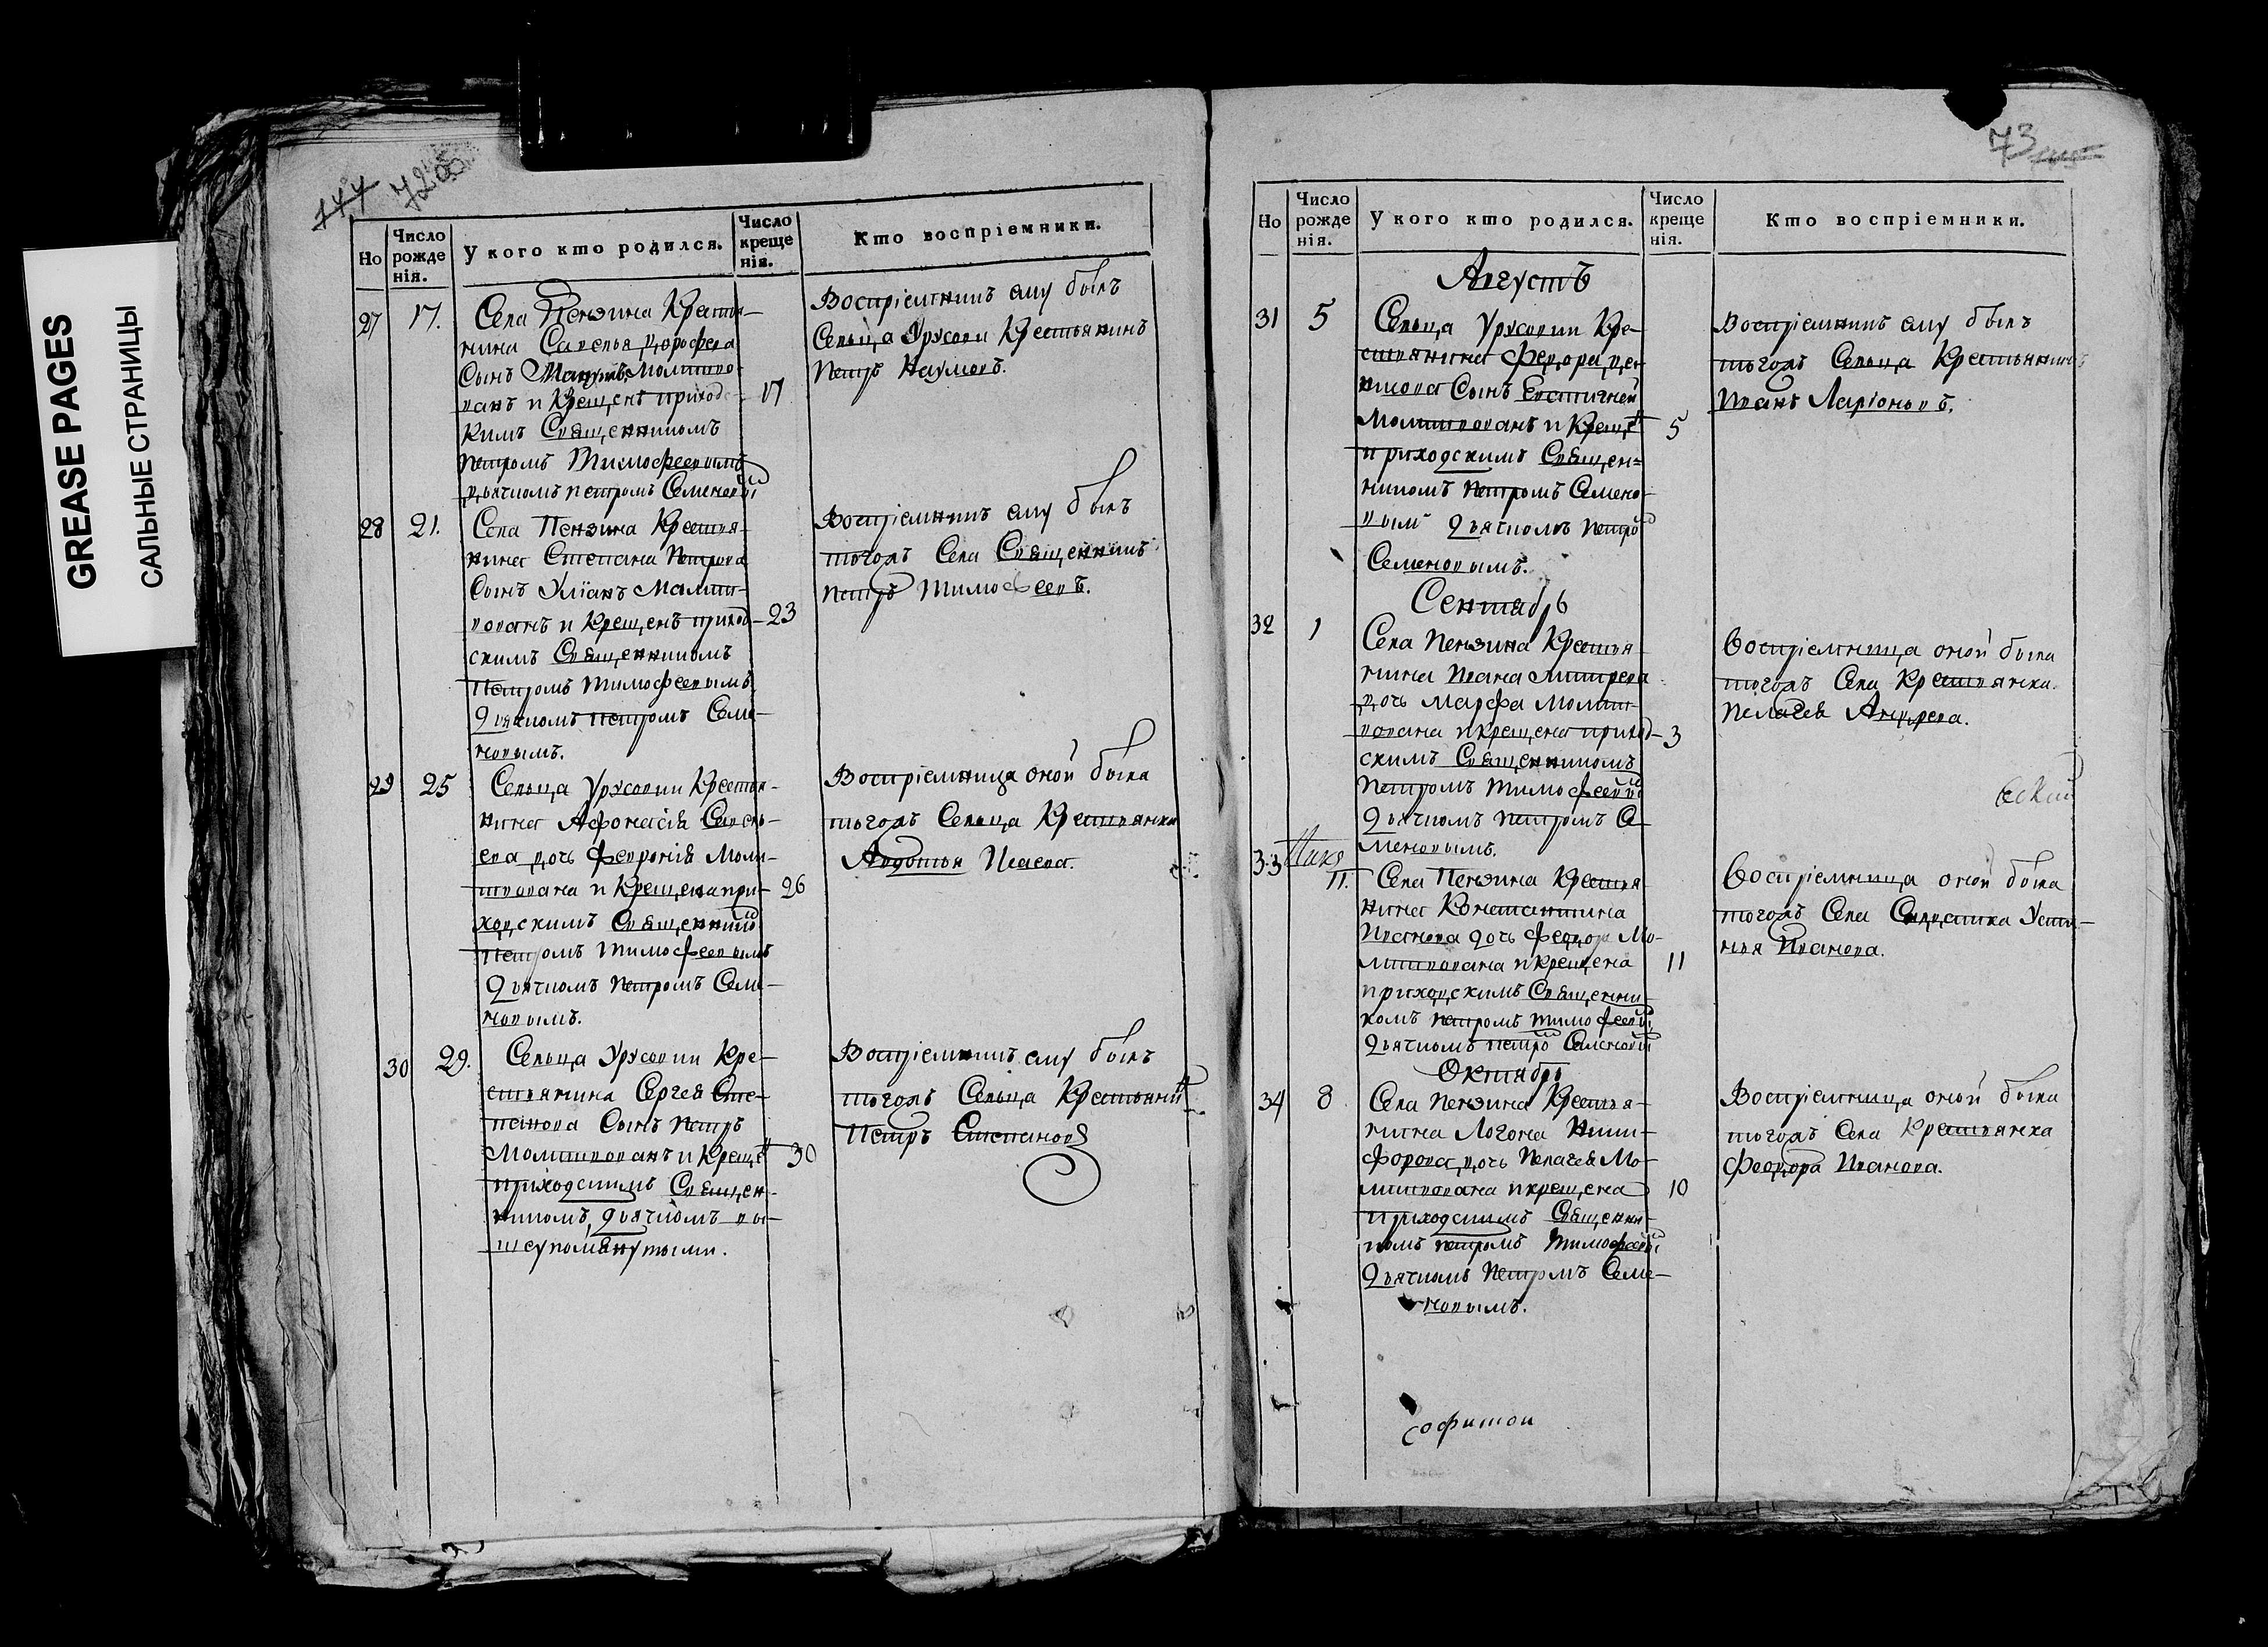 GREASE PAGES
САЛЬНЫЕ СТРАНИЦЫ
144
72об
Но
Число рожде нія.
У кого кто родился.
Число креще нія.
Кто воспріемники.
27
17.
Села Пензина Крестья-
нина Савелья Дорофеева
Сынъ молитво-
ванъ и Крещенъ приход-
кимъ Священникомъ
петромъ Тимофеевымъ
дьячкомъ петромъ Семеновым
17
Воспріемникъ ему былъ
Сельца Урусова Крестьянинъ
Петръ Наумовъ.
28
21.
Села Пензина Крестья-
нина Степана Петрова
Сынъ Уліанъ Молит-
вованъ и Крещенъ приход-
скимъ Священникомъ
Петромъ Тимофеевымъ
дьячкомъ петромъ Семе-
новымъ.
23
Воспріемникъ ему былъ
тогожъ Села Священникъ
петръ Тимофеевъ.
29
25
Сельца Урусовки Крестья-
нина Афонасія Савель-
ева дочь Февронія Моли-
твована и Крещена при-
ходскимъ Священником
петромъ Тимофеевымъ
дьячкомъ петромъ Семе-
новымъ.
26
Воспріемница оной была
тогожъ Сельца Крестьянка
Авдотья Исаева.
30
29.
Сельца Урусовки Кре-
стьянина Сергея Сте-
панова Сынъ Петръ
Молитвованъ и Крещен
приходскимъ Священ-
никомъ, дьячкомъ вы-
шеупомянутыми.
30
Воспріемникъ ему былъ
тогожъ Сельца Крестьянин
Петръ Степановъ
73
Но
Число рожде нія.
У кого кто родился.
Число креще нія.
Кто воспріемники.
Августъ
31
5
Сельца Урусовки Кре-
стьянина Федора
Сынъ Евстигней
Молитвованъ и Крещен
приходскимъ Священ=
никомъ петромъ Семено-
вым дьячкомъ петро
Семеновымъ.
5
Воспріемникъ ему былъ
тогожъ Сельца Крестьянинъ
Иванъ Ларіоновъ.
Сентябрь
32
1
Села Пензина Крестья-
нина Ивана Митрева
дочь Марфа Молит-
вована и крещена приход-
скимъ Священникомъ
Петромъ Тимофеевым
дьячкомъ петромъ Се
меновымъ.
3
Воспріемница оной была
тогожъ Села Крестьянка.
Пелагея Андрева.
33
11.
Села Пензина Крестья-
нина Констаннтина
Иванова дочь Федора Мо-
литвована и крещена
приходскимъ Священни-
комъ петромъ тимофеевым
дьячкомъ петро Семеновым
11
Воспріемница оной была
тогожъ Села Салдатка Усти-
нья Иванова.
Октябрь
34
8
Села Пензина Крестья-
нина Логона Ники-
форова, дочь Пелагея Мо-
литвована и крещена
приходскимъ Священни-
комъ петромъ Тимофеевы
дьячкомъ Петромъ Семе-
новымъ.
10
Воспріемница оной была
тогожъ Села Крестьянка
Федора Иванова.